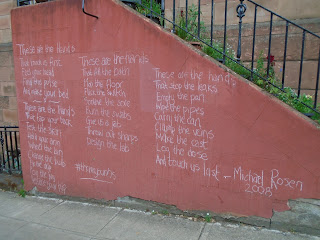 These are the Hands
That touch us first
Feel your head
Find the pulse
And make your bed
These are the Hands
That tap your back
Test the skin
Hold your arm
Wheel the bin
Change the bulb
Fix the drip
Pour the jug
These are the Hands
That fill the bath
Mop the floor
Flick the switch
Soothe the sore
Burn the swabs
Give us a jab
Throw out sharps
Design the lab
These are the Hands
That stop the leaks
Empty the pan
Wipe the pipes
Carry the can
Clamp the veins
Make the cast
Log the dose
And touch us last - Michael Rosen
2008